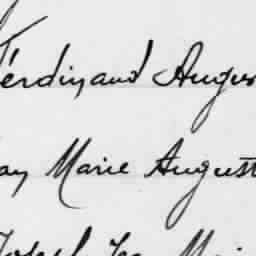 Ferdinand Augus
ay Marie August
Joseph